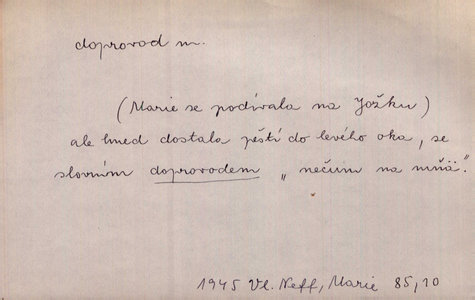 doprovod m.
(Marie se podívala na Jožku)
ale hned dostala pěstí do levého oka, se
slovním doprovodem „nečum na mňä".
1945 Vl. Neff, Marie 85,10